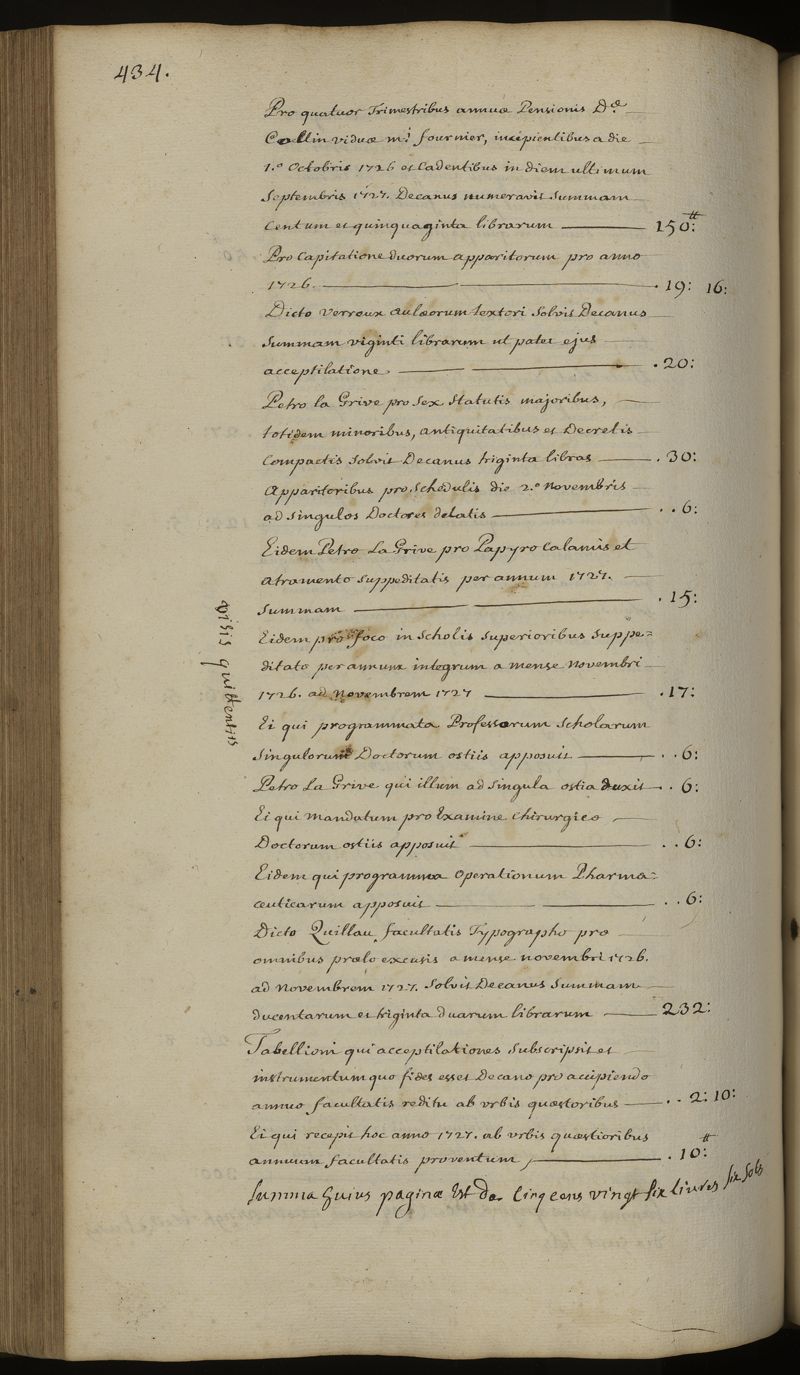 434.
Pro quatuor Trimestribus annuæ Pensionis D.æ
Collin viduæ m.i fournier, incipientibus a die
1.a Octobris 1726 et Cadentibus in diem ultimum
Septembris 1727. Decanus numeravit Summam
Centum et quinquaginta librarum 150:tt
Pro Capitatione duorum apparitorum pro anno
1726. 19: 16:
Dicto Verroux aulæorum textori Solvit Decanus
Summam viginti librarum ut patet ejus
acceptilatione. 20:
Petro la Grive pro Sex Statutis majoribus,
totidem minoribus, antiquitatibus et Decretis
Compactis Solvit Decanus triginta libras 30:
Apparitoribus pro Schedulis die 2.a Novembris
ad Singulos Doctores delatis 6:
Eidem Petro La Grive pro Papyro Calamis et
atramento Suppeditatis per annum 1727.
Summam 15:
Eidem pro foco in Scholis Superioribus Suppe=
ditato per annum integrum a mense Novembri
1726. ad Novembrem 1727 17:
Ei qui programmata Professorum Scholarum
Singulorum Doctorum ostiis apposuit 6:
Petro La Grive qui illum ad Singula ostia duxit 6:
Ei qui Mandatum pro Examine Chirurgico
Doctorum ostiis apposuit 6:
Eidem qui programma Operationum Pharma=
ceuticarum apposuit 6:
Dicto Quillau, facultatis Typographo pro
omnibus prælo excusis a mense novembri 1726.
ad Novembrem 1727. Solvit Decanus Summam
ducentarum et triginta duarum librarum 232:
Tabellioni qui acceptilationes Subscripsit et
instrumentum quo fides esset Decano pro accipiendo
annuo facultatis reditu ab urbis quæstoribus 2: 10:
Ei qui recepit hoc anno 1727. ab urbis quæstioribus
annuum facultatis proventum, 10:tt
Summa hujus paginæ Est de Cinq cens vingt six livres six sols
visis quittentiis